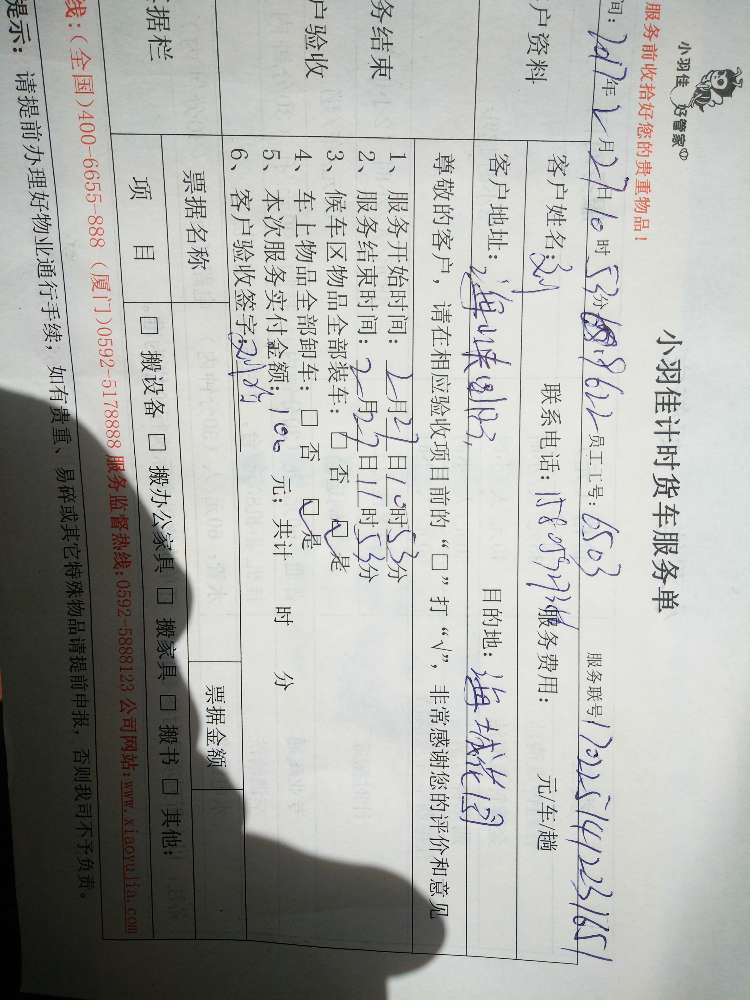 小羽佳 好管家
小羽佳计时货车服务单
服务前收拾好您的贵重物品！
间：2017年2月27日10时53分 9622 员工工号：6503 服务联号1702251412231651
户资料
客户姓名：刘 联系电话： 服务费用： 元/车/趟
客户地址： 目的地：海城花园
尊敬的客户，请在相应验收项目前的“□”打“√”，非常感谢您的评价和意见
务结束
户验收
1、服务开始时间：2月27日10时53分
2、服务结束时间：2月27日11时53分
3、候车区物品全部装车：□ 否 ☑是
4、车上物品全部卸车：□ 否 ☑是
5、本次服务实付金额：100 元；共计 时 分
6、客户验收签字：
据栏
票据名称 票据金额
项 目 □ 搬设备 □ 搬办公家具 □ 搬家具 □ 搬书 □ 其他：
线：(全国)400-6655-888 (厦门)0592-5178888 服务监督热线:0592-5888123 公司网站:www.xiaoyujia.com
提示：请提前办理好物业通行手续，如有贵重、易碎或其它特殊物品请提前申报，否则我司不予负责。